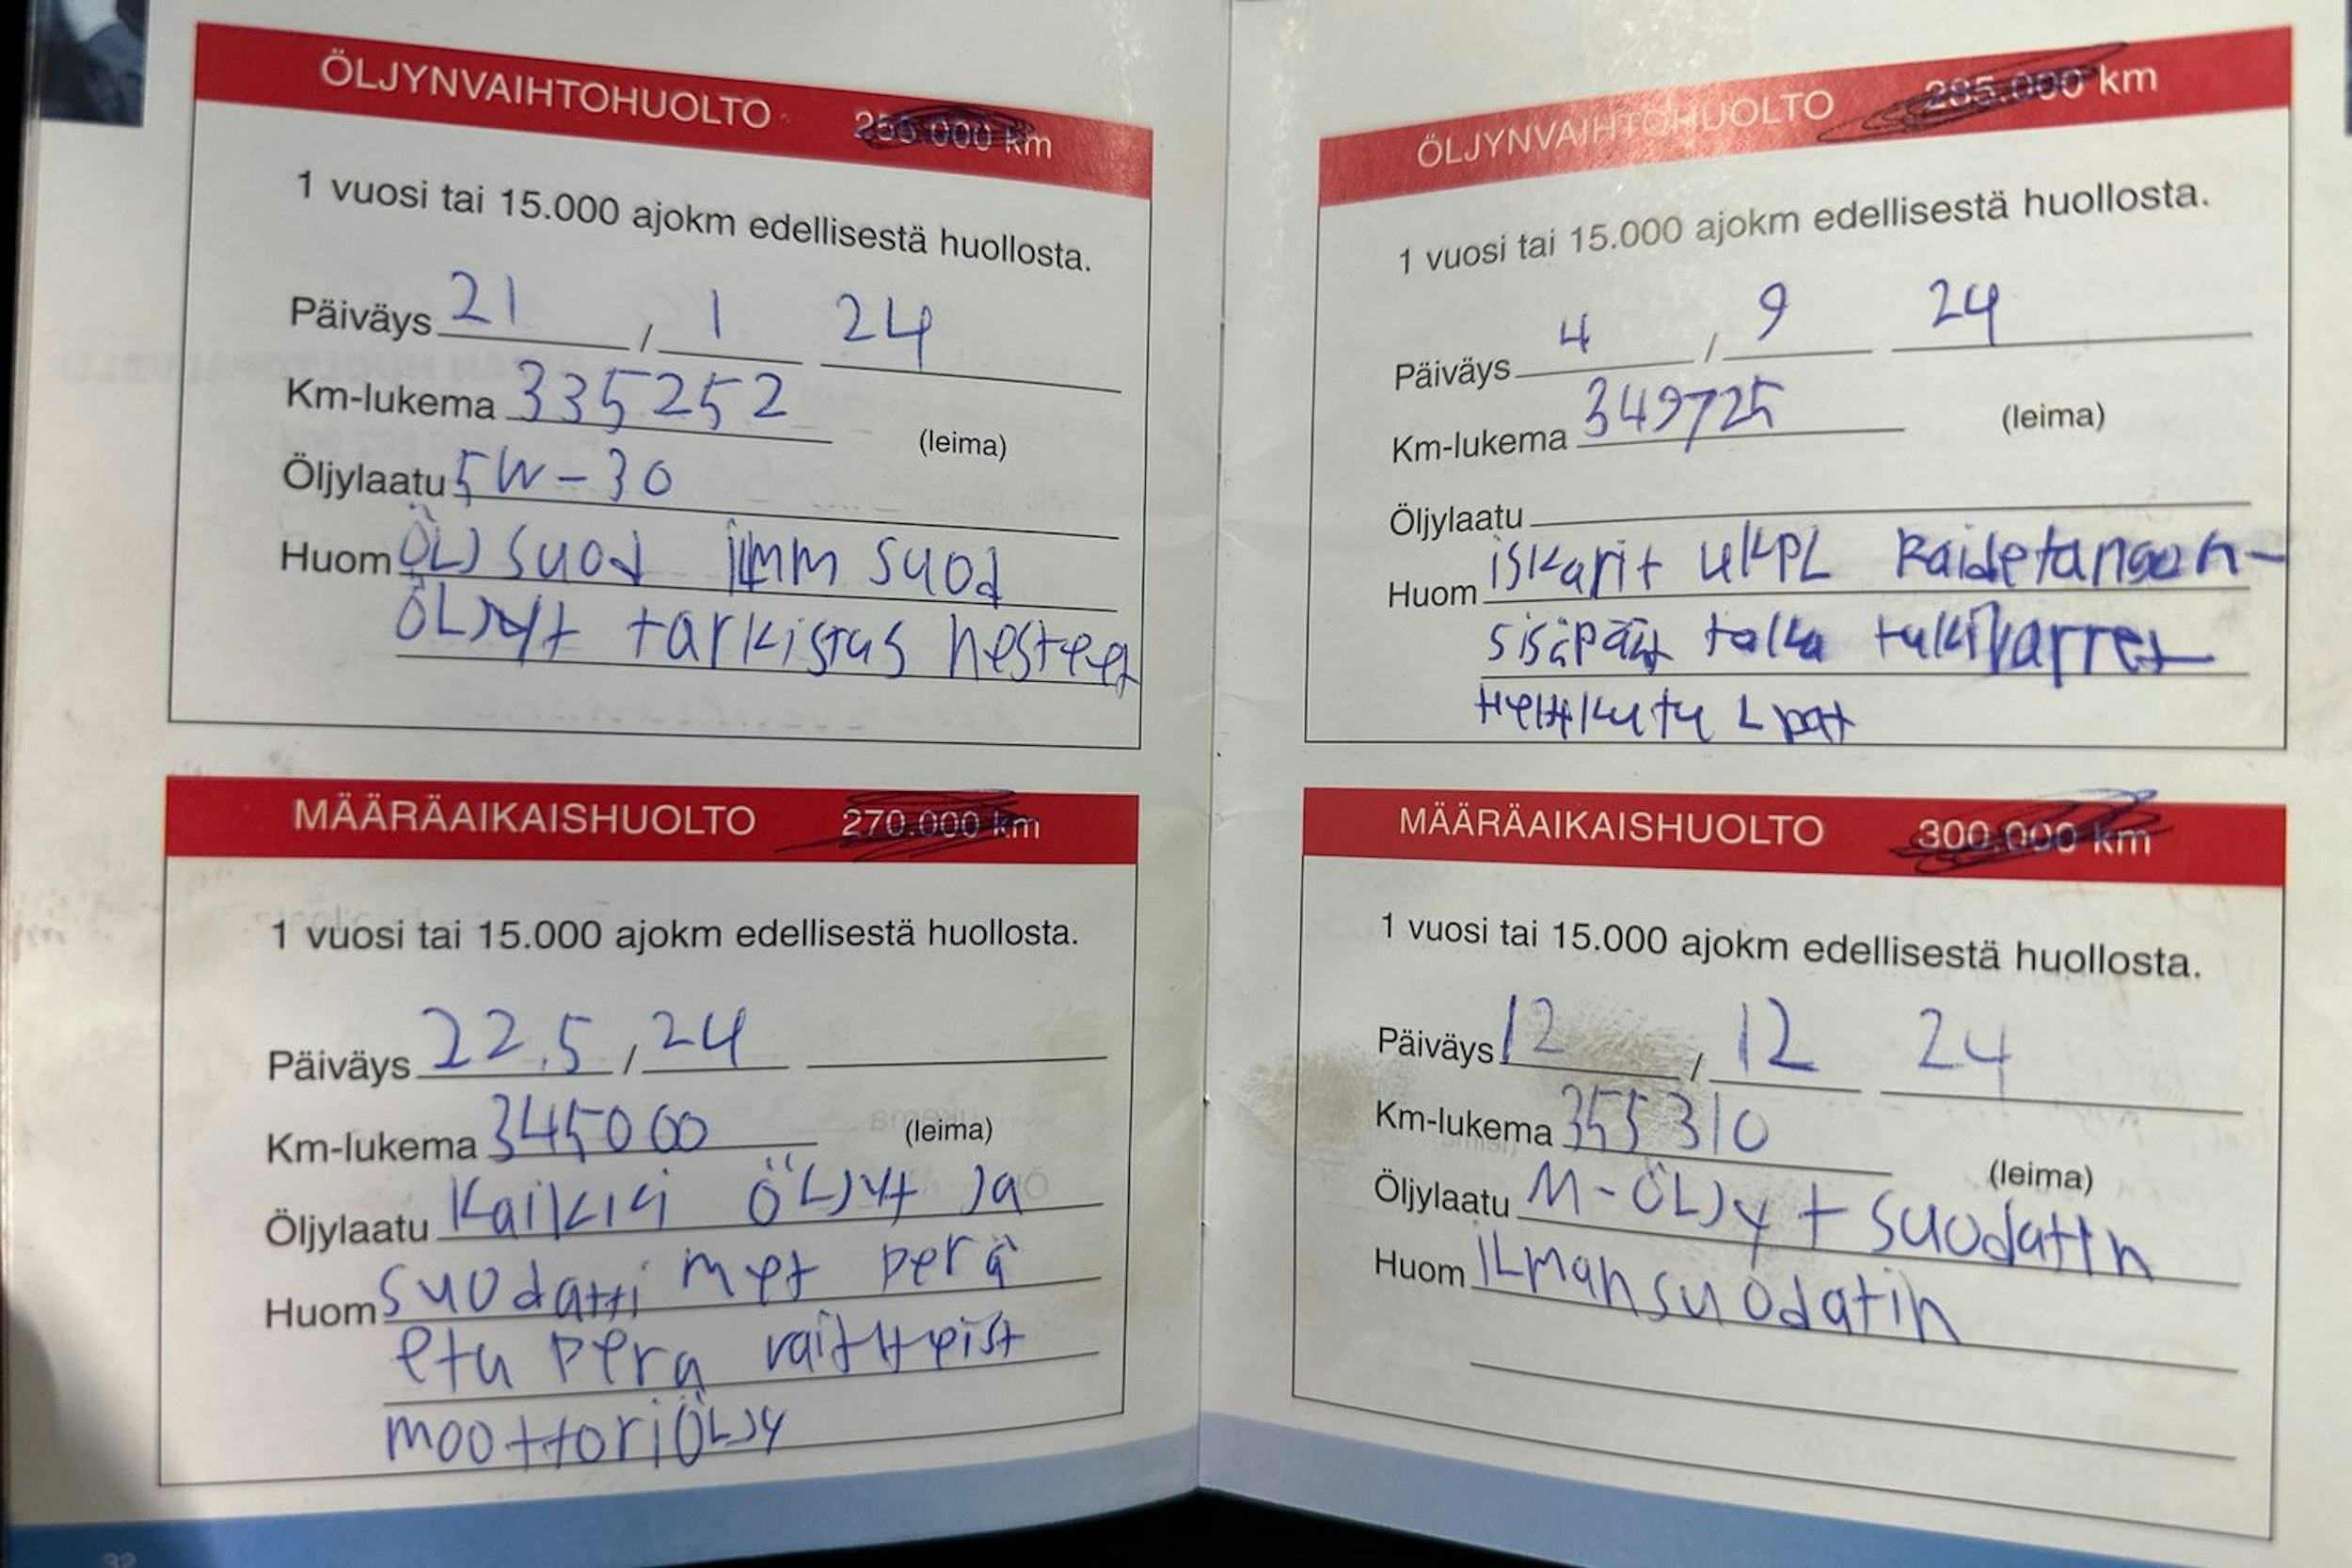 ÖLJYNVAIHTOHUOLTO 255.000 km
1 vuosi tai 15.000 ajokm edellisestä huollosta.
Päiväys 21 / 1 24
Km-lukema 335252
(leima)
Öljylaatu 5W-30
Huom ÖLJ SUOd iLmm suod
ÖLJyt tarkistus nesteet
MÄÄRÄAIKAISHUOLTO 270.000 km
1 vuosi tai 15.000 ajokm edellisestä huollosta.
Päiväys 22.5 / 24
Km-lukema 345000
(leima)
Öljylaatu Kaikki ÖLJyt Ja
Huom suodatti met perä
etu pera vaihteist
moottoriÖLJy
32
ÖLJYNVAIHTOHUOLTO 285.000 km
1 vuosi tai 15.000 ajokm edellisestä huollosta.
Päiväys 4 / 9 24
Km-lukema 349725
(leima)
Öljylaatu
Huom iskarit 4kPL Raidetangon-
sisäpäät tukivarret
MÄÄRÄAIKAISHUOLTO 300.000 km
1 vuosi tai 15.000 ajokm edellisestä huollosta.
Päiväys 12 / 12 24
Km-lukema 355310
(leima)
Öljylaatu M-ÖLJy + suodatin
Huom iLmansuodatin